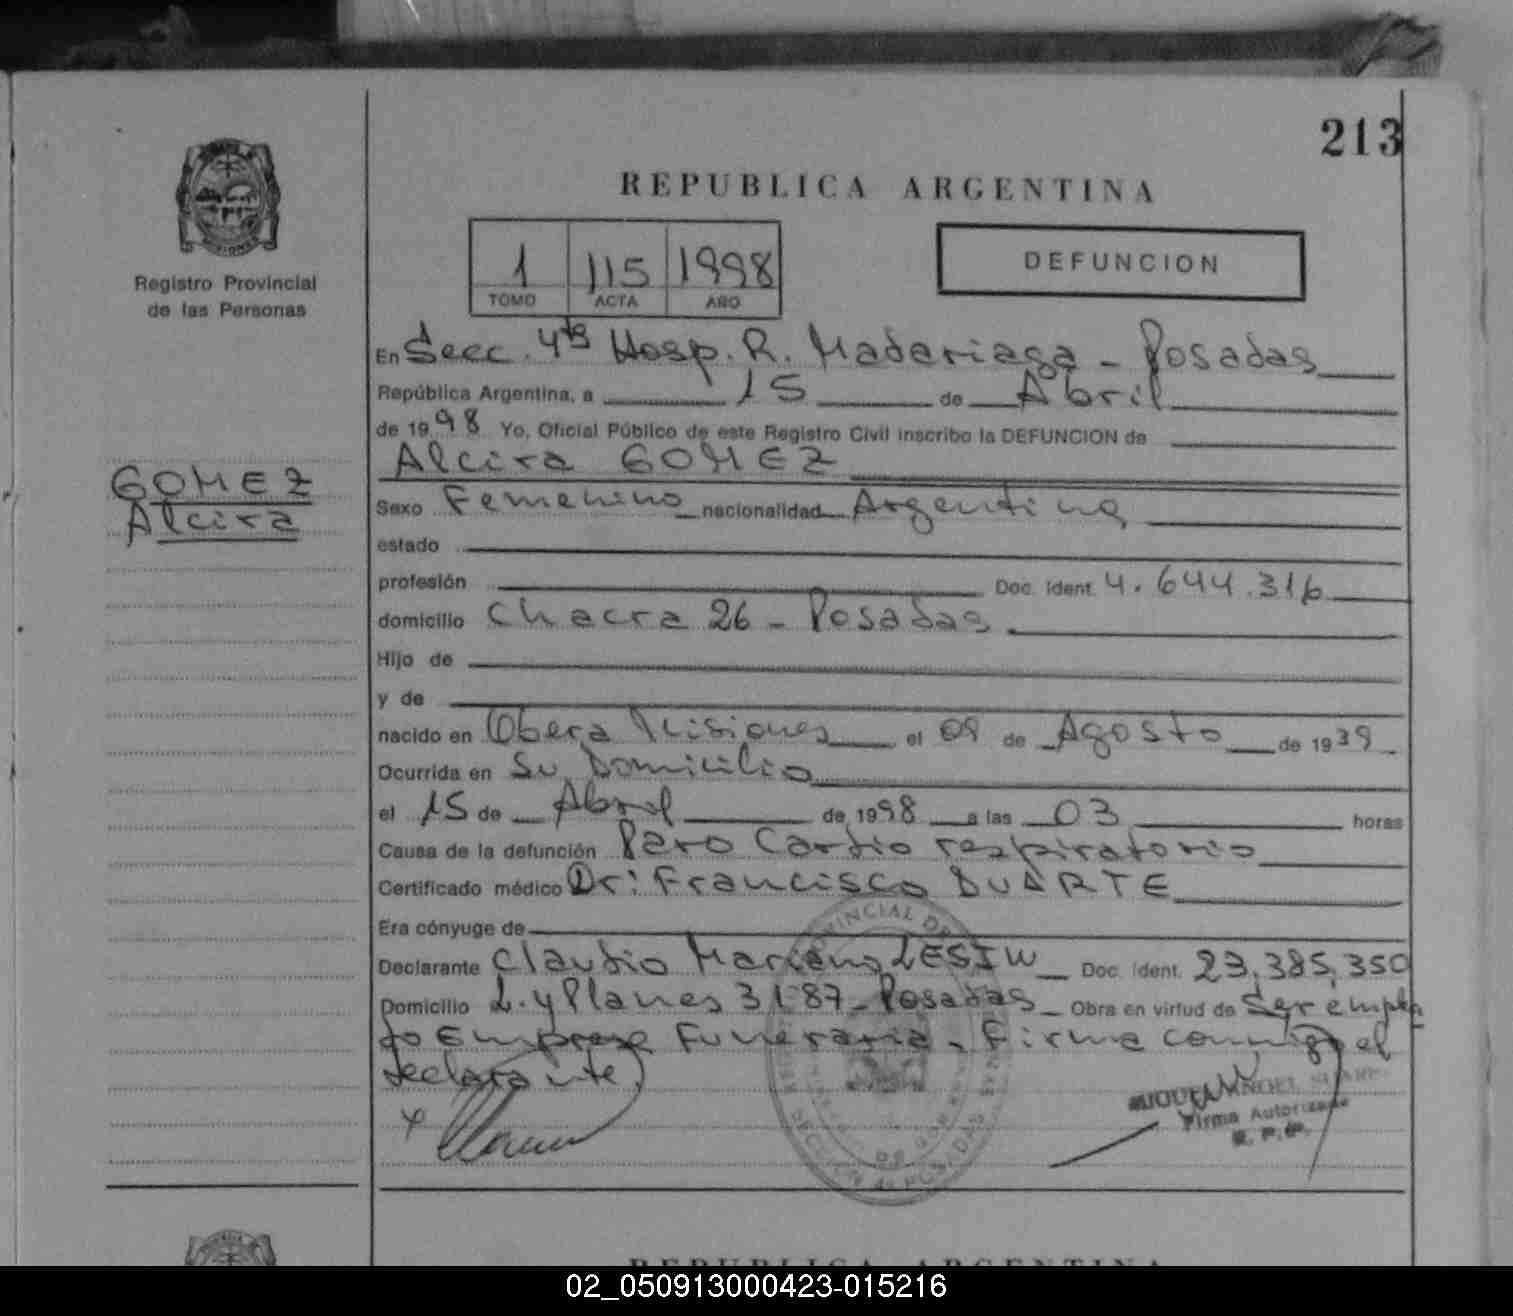 213
REPUBLICA ARGENTINA
Registro Provincial
de las Personas
1 115 1998
TOMO ACTA AÑO
DEFUNCION
GOMEZ
Alcira
En Secc. 4ta Hosp. R. Madariaga - Posadas
República Argentina, a 15 de Abril
de 1998 Yo, Oficial Público de este Registro Civil inscribo la DEFUNCION de
Alcira GOMEZ
Sexo Femenino nacionalidad Argentina
estado
profesión Doc. Ident. 4.644.316
domicilio Chacra 26 - Posadas
Hijo de
y de
nacido en Obera Misiones el 09 de Agosto de 1939
Ocurrida en Su Domicilio
el 15 de Abril de 1998 a las 03 horas
Causa de la defunción Paro Cardio respiratorio
Certificado médico Dr: Francisco DUARTE
Era cónyuge de
Declarante Claudio Mariano LESIW Doc. Ident. 23.385.350
Domicilio L. y Planes 3187 - Posadas - Obra en virtud de Ser emplea
do Empresa Funeraria - Firma conmigo el
declarante
Firma Autorizada
R. P. P.
SECCION 4ª POSADAS
REPUBLICA ARGENTINA
02_050913000423-015216